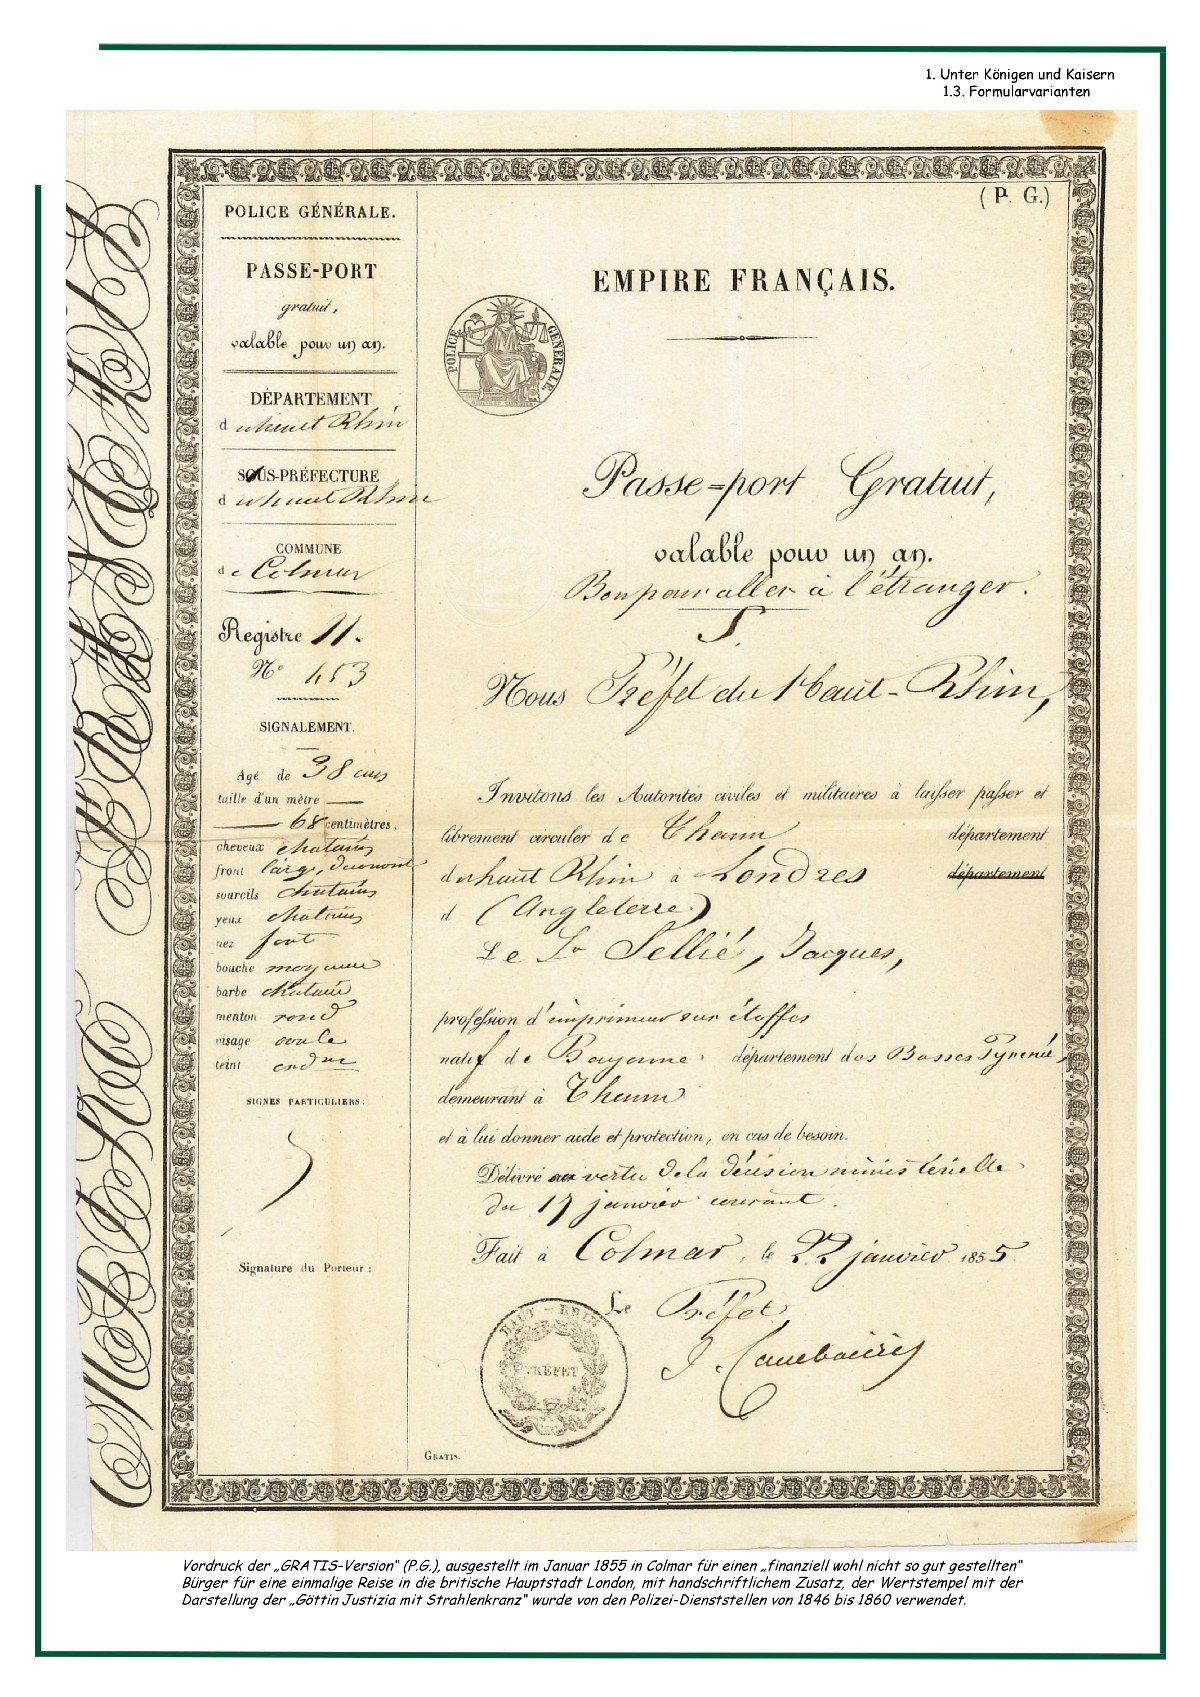 1. Unter Königen und Kaisern
1.3. Formularvarianten
(P. G.)
POLICE GÉNÉRALE.
PASSE-PORT
gratuit,
valable pour un an.
DÉPARTEMENT
du haut Rhin
SOUS-PRÉFECTURE
du haut Rhin
COMMUNE
de Colmar
Registre 11.
N° 453
SIGNALEMENT.
Agé de 38 ans
taille d'un mètre
68 centimètres.
cheveux chatains
front large, decouvert
sourcils chatains
yeux chatains
nez fort
bouche moyenne
barbe chataine
menton rond
visage ovale
teint
SIGNES PARTICULIERS:
Signature du Porteur:
EMPIRE FRANÇAIS.
POLICE GENERALE.
Passe=port Gratuit,
valable pour un an.
Bon pour aller à l'étranger.
Nous Préfet du Haut-Rhin,
Invitons les Autorités civiles et militaires à laisser passer et
librement circuler de Thann département
du haut Rhin à Londres département
d (Angleterre)
Le Sr Sellié, Jacques,
profession d'imprimeur sur étoffes
natif de Bayonne département des Basses Pyrenées
demeurant à Thann
et à lui donner aide et protection, en cas de besoin.
Délivré en vertu de la décision ministérielle
du 17 janvier courant.
Fait à Colmar, le 22 janvier 1855.
Le Préfet,
HAUT-RHIN
PRÉFET
GRATIS.
Vordruck der „GRATIS-Version" (P.G.), ausgestellt im Januar 1855 in Colmar für einen „finanziell wohl nicht so gut gestellten"
Bürger für eine einmalige Reise in die britische Hauptstadt London, mit handschriftlichem Zusatz, der Wertstempel mit der
Darstellung der „Göttin Justizia mit Strahlenkranz" wurde von den Polizei-Dienststellen von 1846 bis 1860 verwendet.